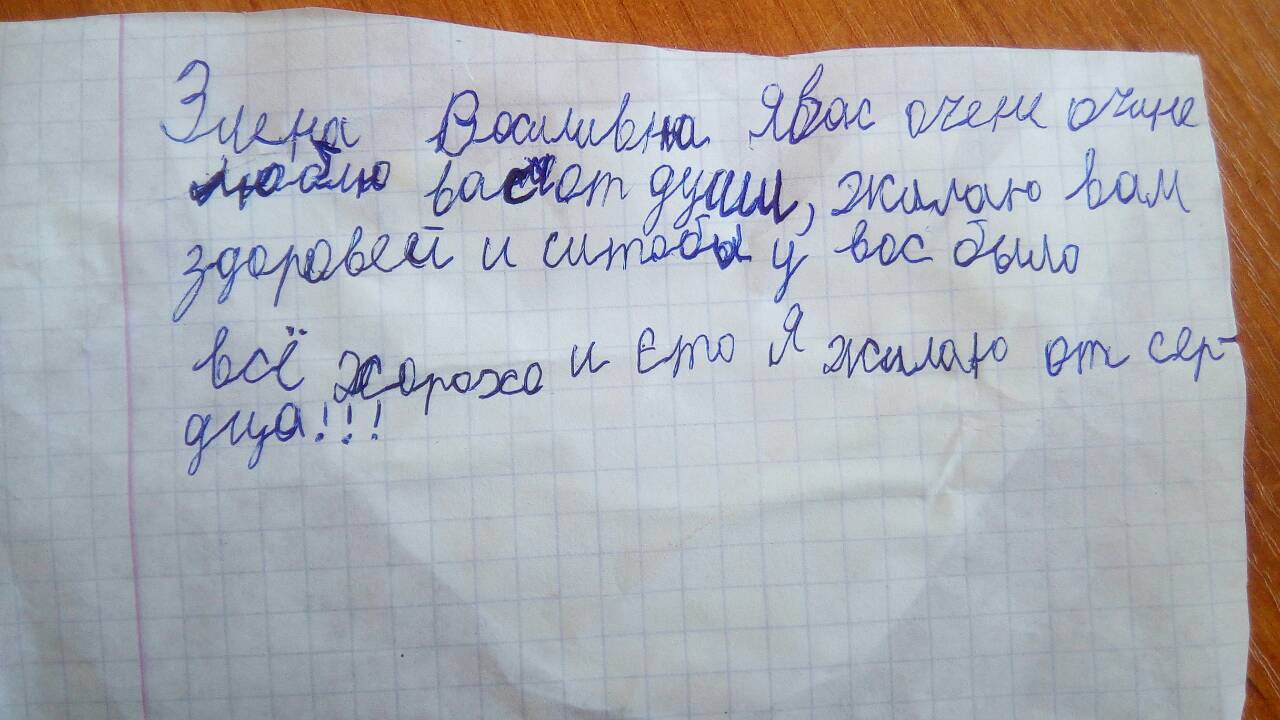 Элена Василивна Я вас очене очине
люблю вас от души, жилаю вам
здоровей и ситобы у вас было
всё хорохо и ето я жилаю от сер-
дца!!!